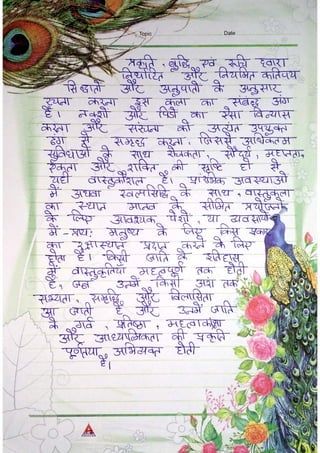 Topic Date
प्रकृति, बुद्धि एवं रुचि द्वारा
निर्धारित और नियमित कतिपय
सिद्धांतों और अनुपातों के अनुसार
रचना करना इस कला का संबद्ध अंग
है। नक्शों और पिंडों का ऐसा विन्यास
करना और संरचना को अत्यंत उपयुक्त
ढंग से समृद्ध करना, जिससे अधिकतम
सुविधाओं के साथ रोचकता, सौंदर्य, महानता,
एकता और शक्ति की सृष्टि हो से
यही वास्तुकौशल है। प्रारंभिक अवस्थाओं
में अथवा स्वल्पसिद्धि के साथ, वास्तुकला
का स्थान मानव के सीमित प्रयोजनों
के लिए आवश्यक पेशों, या व्यवसायों
में-प्रायः मनुष्य के लिए किसी प्रकार
का रक्षास्थान प्रदान करने के लिए
होता है। किसी जाति के इतिहास
में वास्तुकृतियाँ महत्वपूर्ण तब होती
हैं, जब उनमें किसी अंश तक
सभ्यता, समृद्धि और विलासिता
आ जाती है और उनमें जाति
के गर्व, प्रतिष्ठा, महत्वाकांक्षा
और आध्यात्मिकता की प्रकृति
पूर्णतया अभिव्यक्त होती
है।